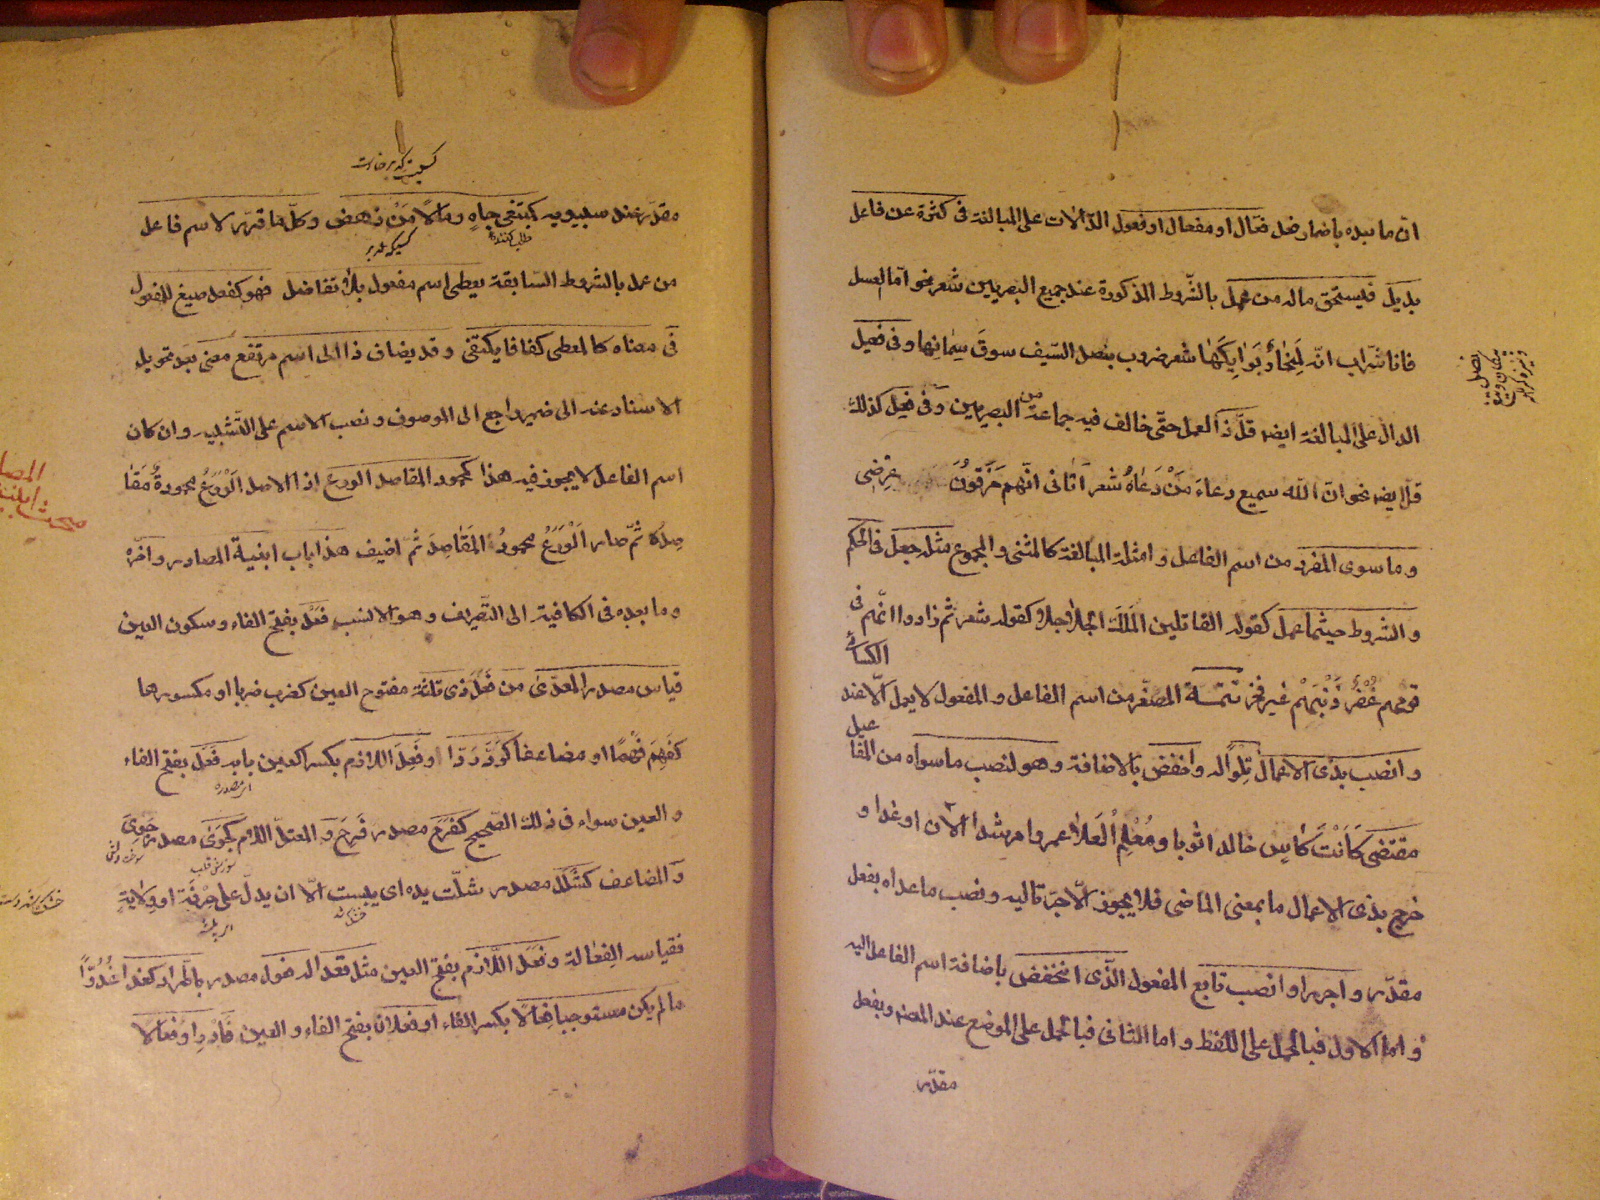 ان ما بعده باضمار فعل فعّال او مفعال او فعول الدّالات على المبالغة فى كثرة عن فاعل
بديل فيستحق ماله من عمل بالشّروط المذكورة عند جميع البصريين شعر نحو امّا العسل
فانا شرّاب انّه لَمِنحارٌ بَوَايِكَهَا شعر ضروب بنصل السّيف سوقَ سِمٰانِها وفى فعيل
الدالّ على المبالغة ايضا قلّ ذا العمل حتّى خالف فيه جماعة من البصريين وَفى فَعِل كذلك
قلّ ايضا نحو انّ اللّه سميع دعاءَ مَنْ دَعٰاهُ شعر اَتٰانى انّهم مَزِقُونَ عِرْضِى
و ما سوى المفرد من اسم الفاعل و امثلة المبالغة كالمثنى و المجموع مثله جعل فى الحكم
و الشروط حيثما عمل كقوله القاتلين المَلِكَ الحُلٰاحِلٰا و كقوله شعر ثم زادوا انّهم فى
قومهم غُفُرٌ ذَنْبَهُمْ غير فخر تتمّة المصغّر من اسم الفاعل و المفعول لا يعمل الّا عند
الكسائى
و انصب بذى الاعمال تِلْواً له و اخفض بالاضافة و هو لنصب ما سواه من المفا
عيل
مقتضى كَاَنْتَ كٰاسٍ خالدا ثوبا و مُعْلِمُ الْعَلاٰءِ عمروا مرشدا الآن او غدا و
خرج بذى الاعمال ما بمعنى الماضى فلا يجوز الّا جرّ تاليه و نصب ما عداه بفعل
مقدّر و اجرر او انصب تابع المفعول الّذى انخفض باضافة اسم الفاعل اليه
و امّا الاول فبالحمل على اللّفظ و اما الثانى فبالحمل على الموضع عند المصنف و بفعل
مقدّر
كسيكه برخاست
مقدّر عند سيبويه كمبتغى جاهٍ و مالاً مَنْ نهض و كلّ ما قرّر لاسم فاعل
طلب كننده
من عمل بالشروط السّابقة يعطى اسم مفعول بلا تفاضل فهو كفعل صيغ للمفعول
فى معناه كالمعطى كفافا يكتفى و قد يضاف ذا الى اسم مرتفع معنى بعد تحويل
الاسناد عنه الى ضمير راجع الى الموصوف و نصب الاسم على التّشبيه و ان كان
اسم الفاعل لا يجوز فيه هذا كمحمود المقاصد الورع اذ الاصل اَلْوَرِعُ محمودةٌ مَقٰا
صِدُهُ ثمّ صار اَلْوَرِعُ محمودُ المَقٰاصِدَ ثم اضيف هذا باب ابنية المصادر و اخّره
و ما بعده فى الكافية الى التّصريف و هو الانسب فَعْل بفتح الفاء و سكون العين
قياس مصدر المعدّى من فعل ذى ثلثة مفتوح العين كضرب ضربا او مكسورها
كفَهِمَ فَهْمًا او مضاعفا كردّ رَدّا و فَعِلَ اللازم بكسر العين بابه فَعَل بفتح الفاء
و العين سواء فى ذلك الصّحيح كفَرَحٍ مصدر فَرِحَ و المعتلّ اللام كجَوىً مصدر جَوِىَ
و المضاعف كشَلَل مصدر شلّت يده اى يبست الّا ان يدلّ على حِرْفَة او وِلاٰيَة
فقياسه الفِعٰالة و فَعَل اللّازم بفتح العين مثل قعد له فعول مصدر باطّراد كغدا غُدُوّاً
ما لم يكن مستوجبا فِعٰالاً بكسر الفاء او فعلان بفتح الفاء و العين فَادْرِ او فعالا